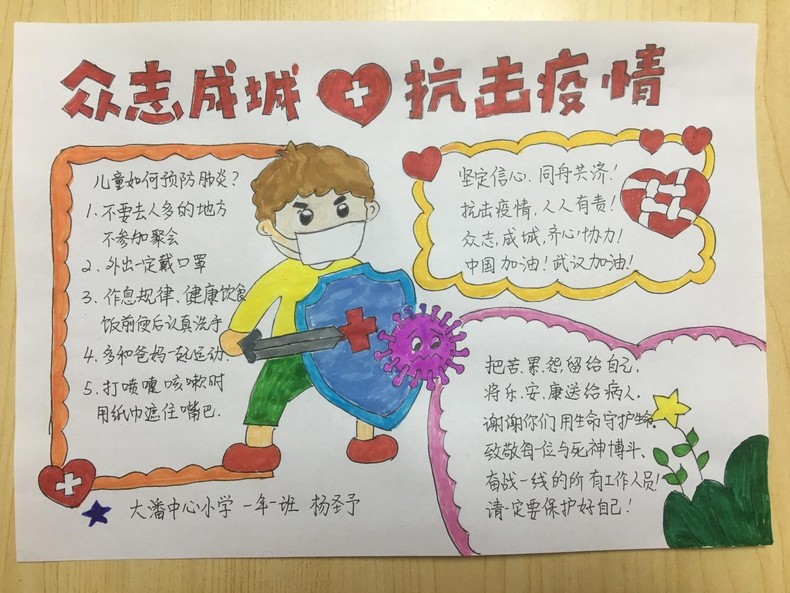 众志成城 抗击疫情
儿童如何预防肺炎?
1.不要去人多的地方
不参加聚会
2.外出一定戴口罩
3.作息规律、健康饮食
饭前便后认真洗手
4.多和爸妈一起运动
5.打喷嚏咳嗽时
用纸巾遮住嘴巴.
大潘中心小学 一年一班 杨圣予
坚定信心.同舟共济!
抗击疫情,人人有责!
众志成城,齐心协力!
中国加油!武汉加油!
把苦.累.怨留给自己,
将乐.安.康送给病人.
谢谢你们用生命守护生命.
致敬每一位与死神博斗、
奋战一线的所有工作人员!
请一定要保护好自己!